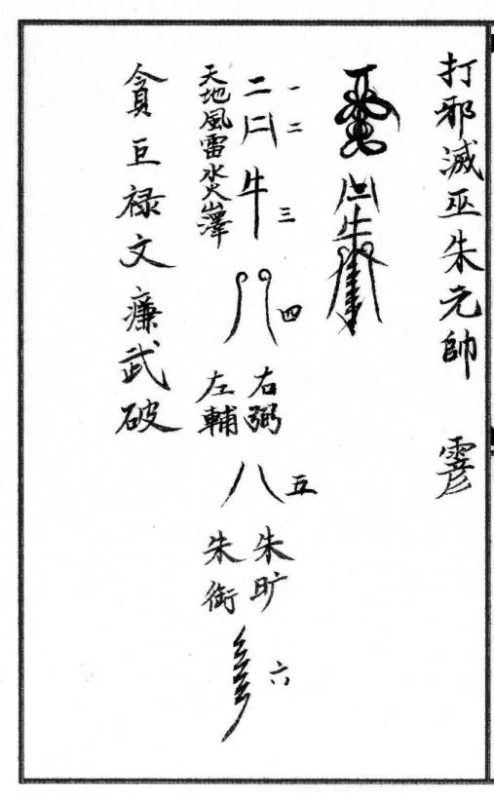 打邪滅巫朱元帥
一二
三
四
右弼
五
朱旷
六
二
牛
八
天地風雷水火山澤
左輔
朱衙
貪巨祿文廉武破